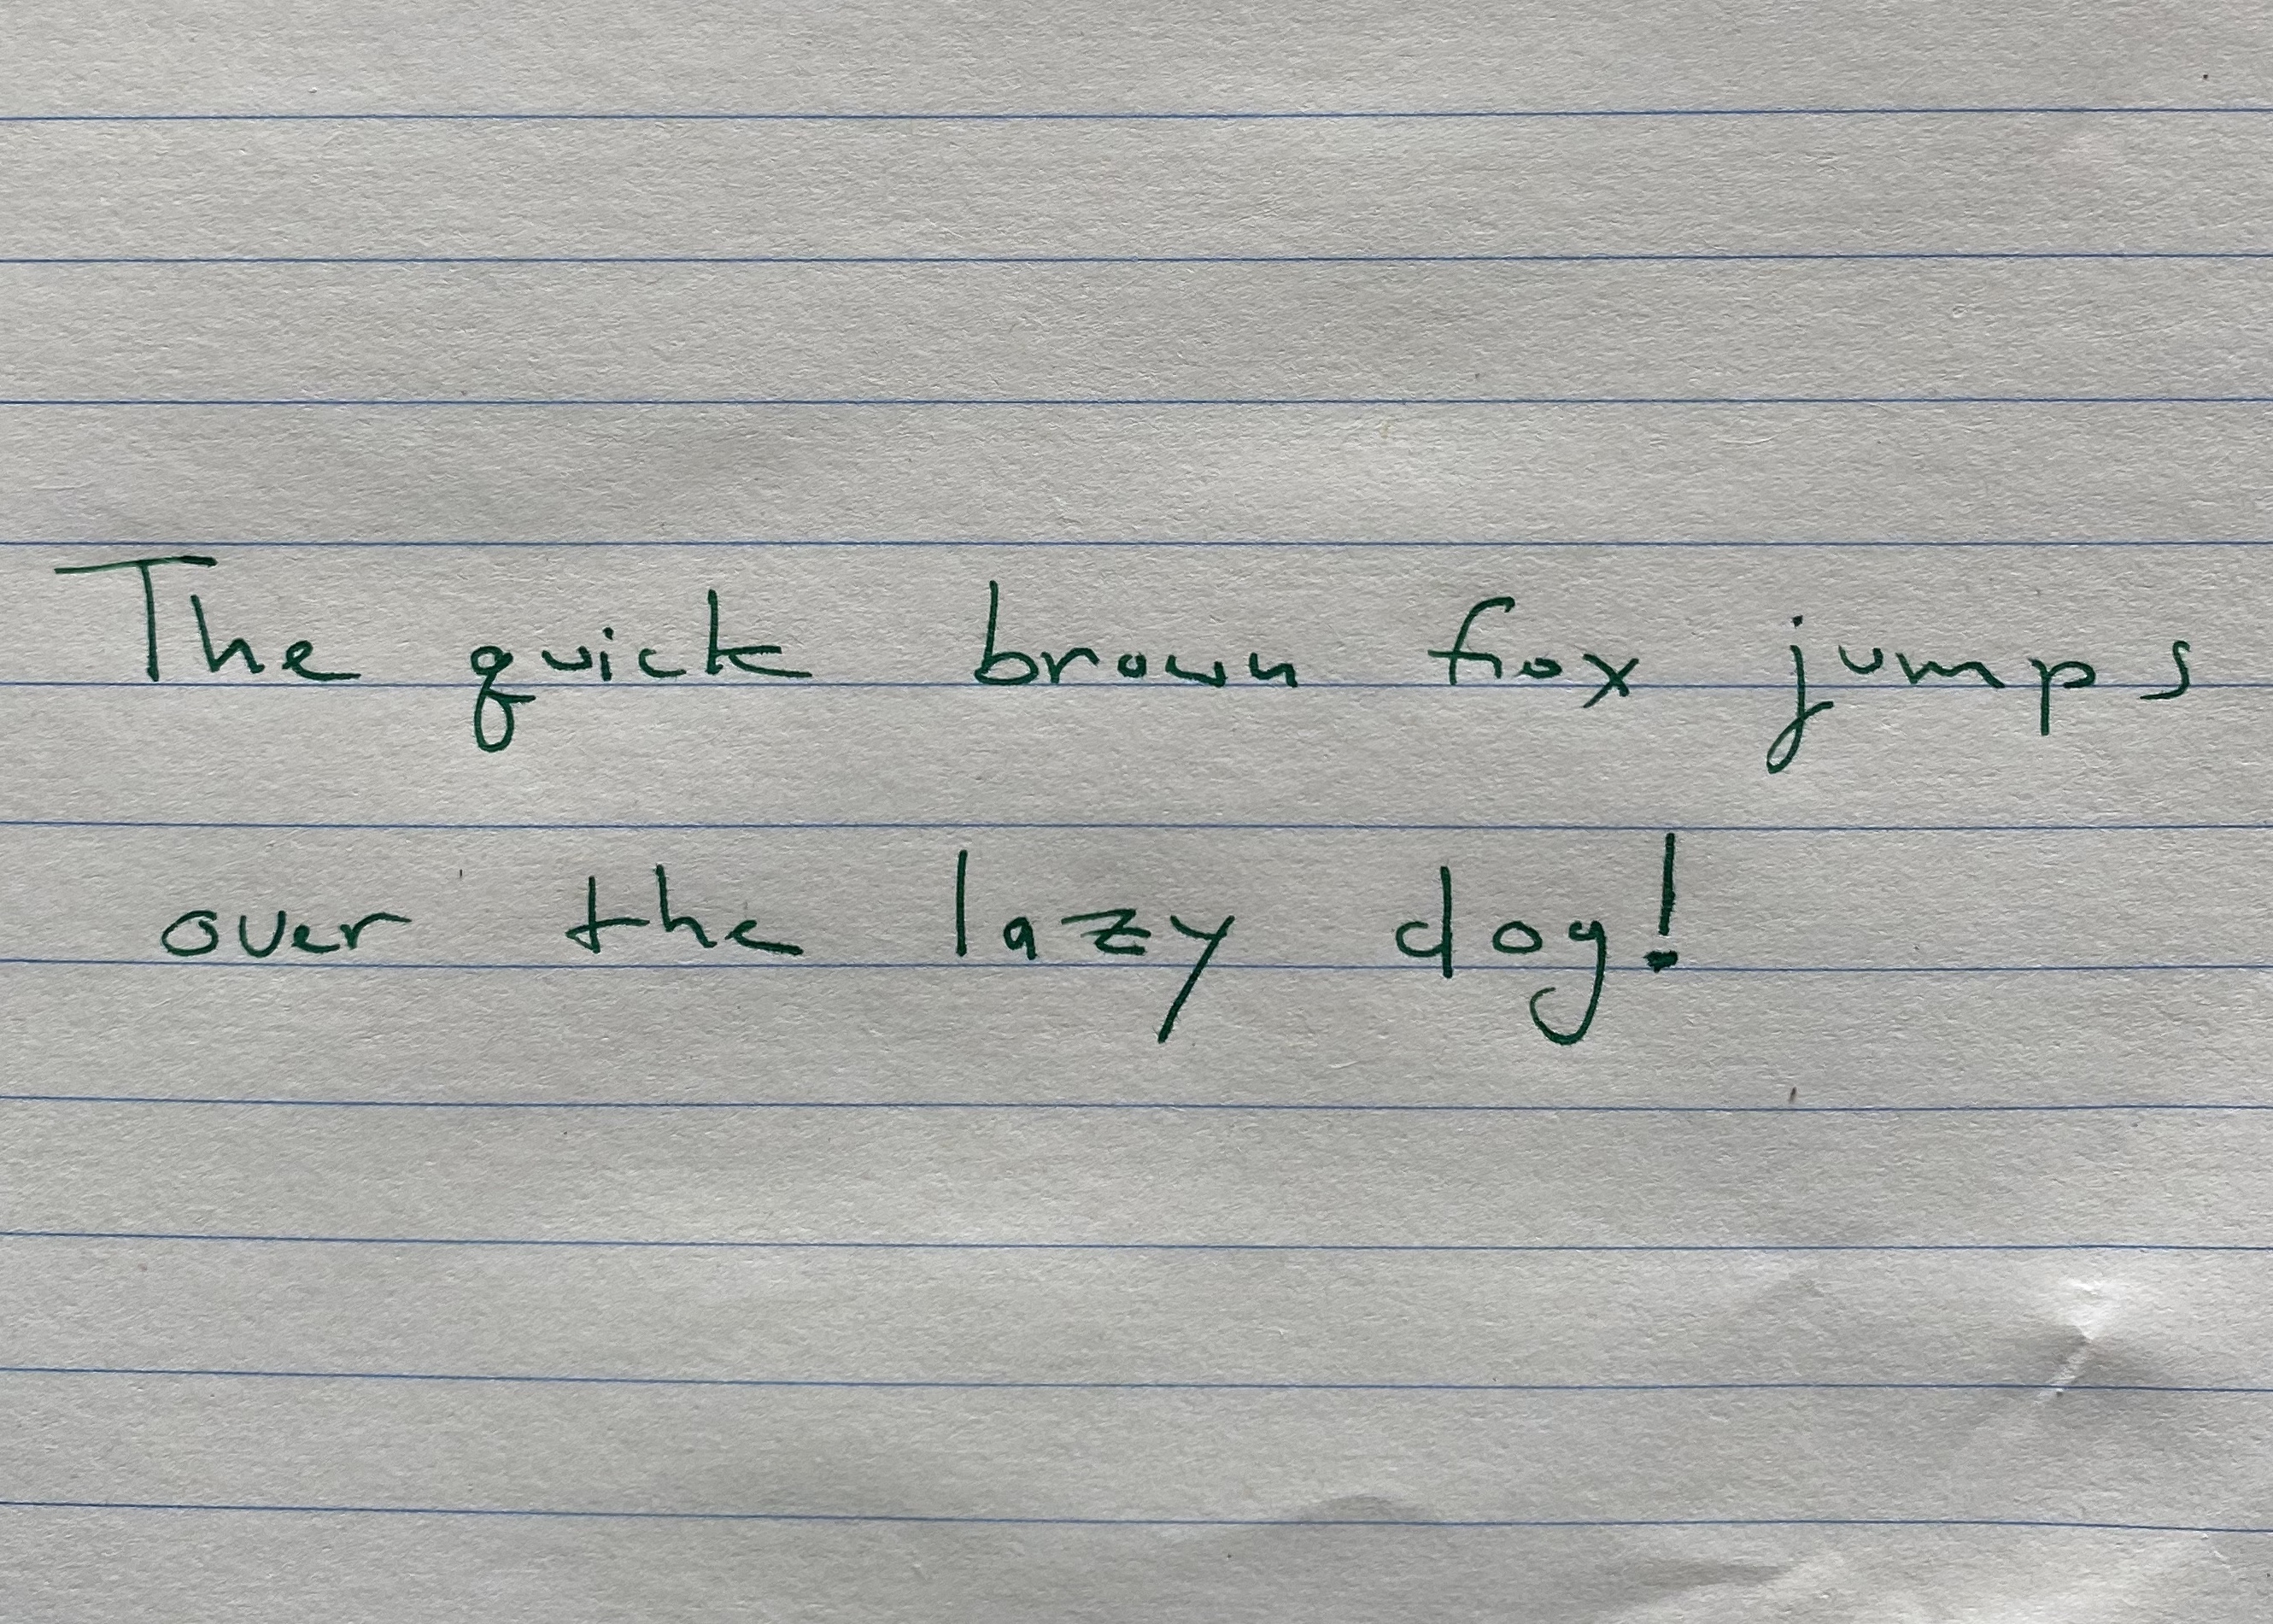 The quick brown fox jumps
over the lazy dog!